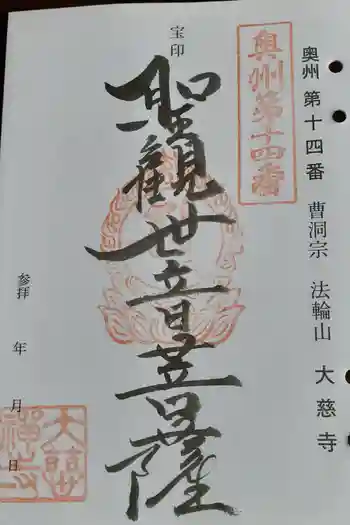 奥州 第十四番 曹洞宗 法輪山 大慈寺
奥州第十四番
宝印
聖観世音菩薩
参拝 年 月 日
大慈禅寺